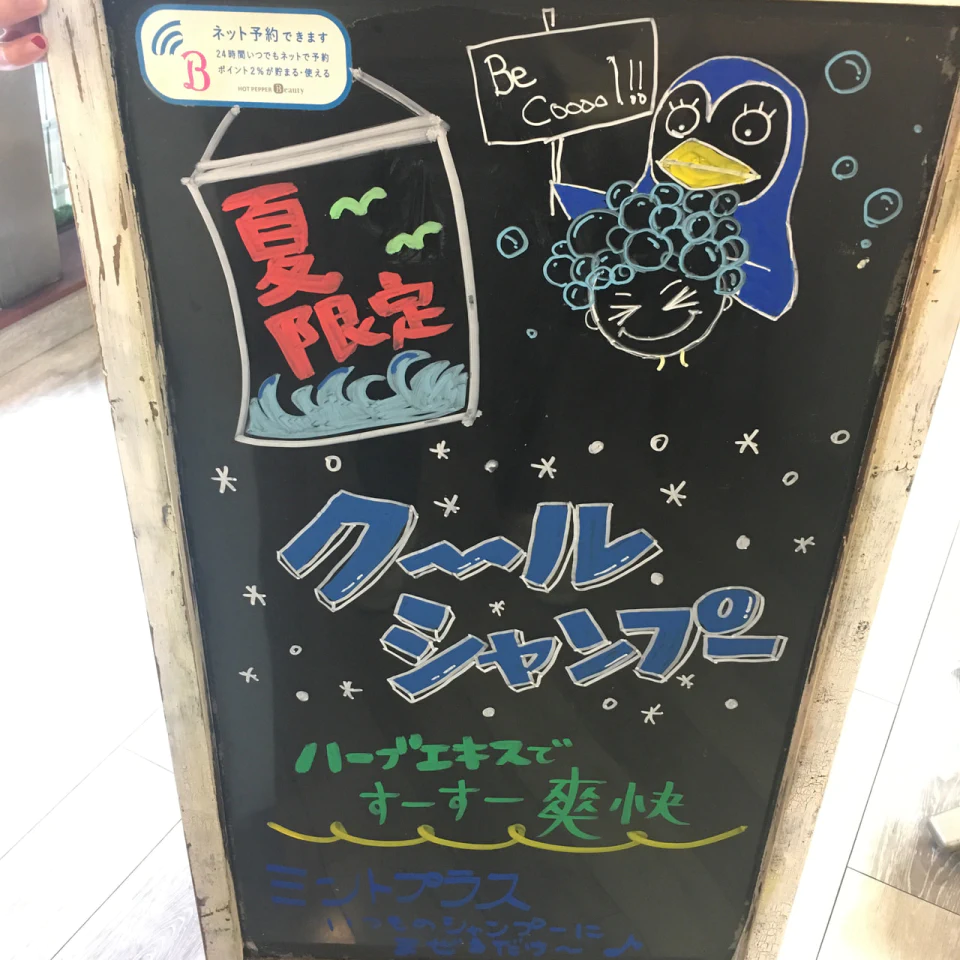 ネット予約できます
24時間いつでもネットで予約
ポイント2%が貯まる・使える
B
HOT PEPPER Beauty
Be
Cooool!!
夏
限定
クール
シャンプー
ハーブエキスで
すーすー爽快
ミントプラス
いつものシャンプーに
まぜるだけ〜♪